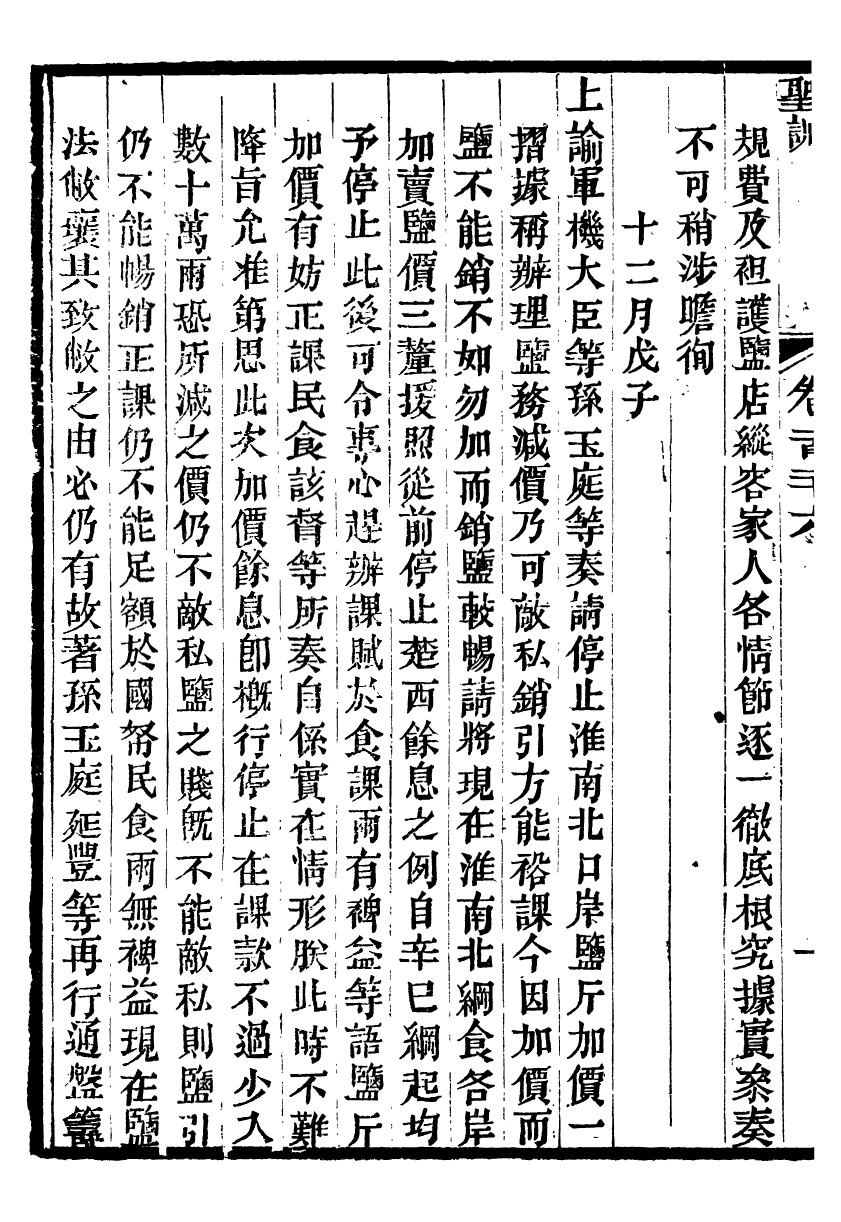 聖訓
卷一百三十六
一
規費及袒護鹽店縱容家人各情節逐一徹底根究據實叅奏
不可稍涉瞻徇
十二月戊子
上諭軍機大臣等孫玉庭等奏請停止淮南北口岸鹽斤加價一
摺據稱辦理鹽務減價乃可敵私銷引方能裕課今因加價而
鹽不能銷不如勿加而銷鹽較暢請將現在淮南北綱食各岸
加賣鹽價三釐援照從前停止楚西餘息之例自辛巳綱起均
予停止此後可令專心趕辦課賦於食課兩有裨益等語鹽斤
加價有妨正課民食該督等所奏自係實在情形朕此時不難
降旨允准第思此次加價餘息卽槪行停止在課款不過少入
數十萬兩恐所減之價仍不敵私鹽之賤旣不能敵私則鹽引
仍不能暢銷正課仍不能足額於國帑民食兩無裨益現在鹽
法敝壞其致敝之由必仍有故著孫玉庭延豐等再行通盤籌